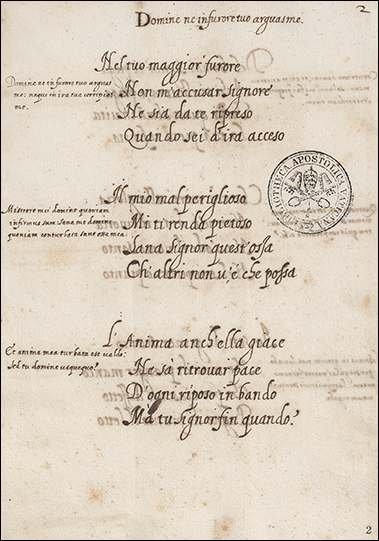 2
Domine ne in furore tuo arguas me.
Nel tuo maggior' furore
Non m'accusar Signore
Ne sia da te ripreso
Quando sei d'ira acceso
Domine ne in furore tuo arguas
me: neque in ira tua corripias
me.
BIBLIOTHECA APOSTOLICA VATICANA
Il mio mal periglioso
Mi ti renda pietoso
Sana Signor quest'ossa
Ch'altri non v'è che possa
Miserere mei domine quoniam
infirmus sum: sana me domine
quoniam conturbata sunt ossa mea.
L'Anima anch'ella giace
Ne sà ritrouar pace
D'ogni riposo in bando
Ma tu signor fin quando?
Et anima mea turbata est ualde:
sed tu domine usquequo?
2